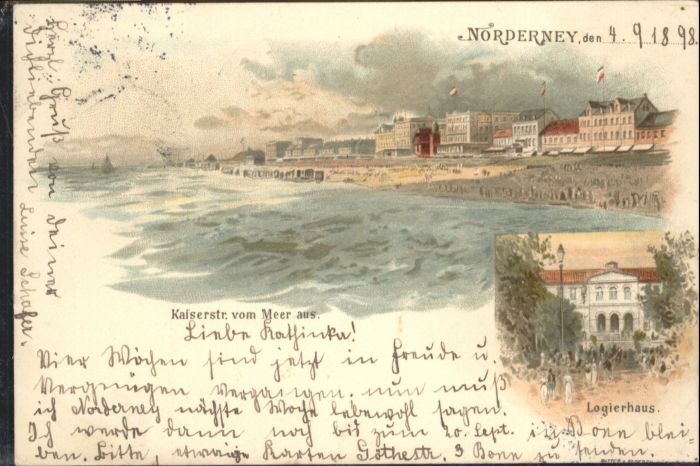 NORDERNEY, den 4. 9 1898.
Kaiserstr. vom Meer aus.
Logierhaus.
Liebe Kathinka!
Vier Wochen sind jetzt in Freude u.
Vergnügen vergangen. nun muß
ich Norderney nächste Woche lebewohl sagen.
Ich werde dann noch bis zum 20. Sept. in Bonn blei-
ben. Bitte, etwaige Karten Göthestr. 3 Bonn zu senden.
Herzl. Gruß von Deiner
Dichliebenden
Luise Schäfer.